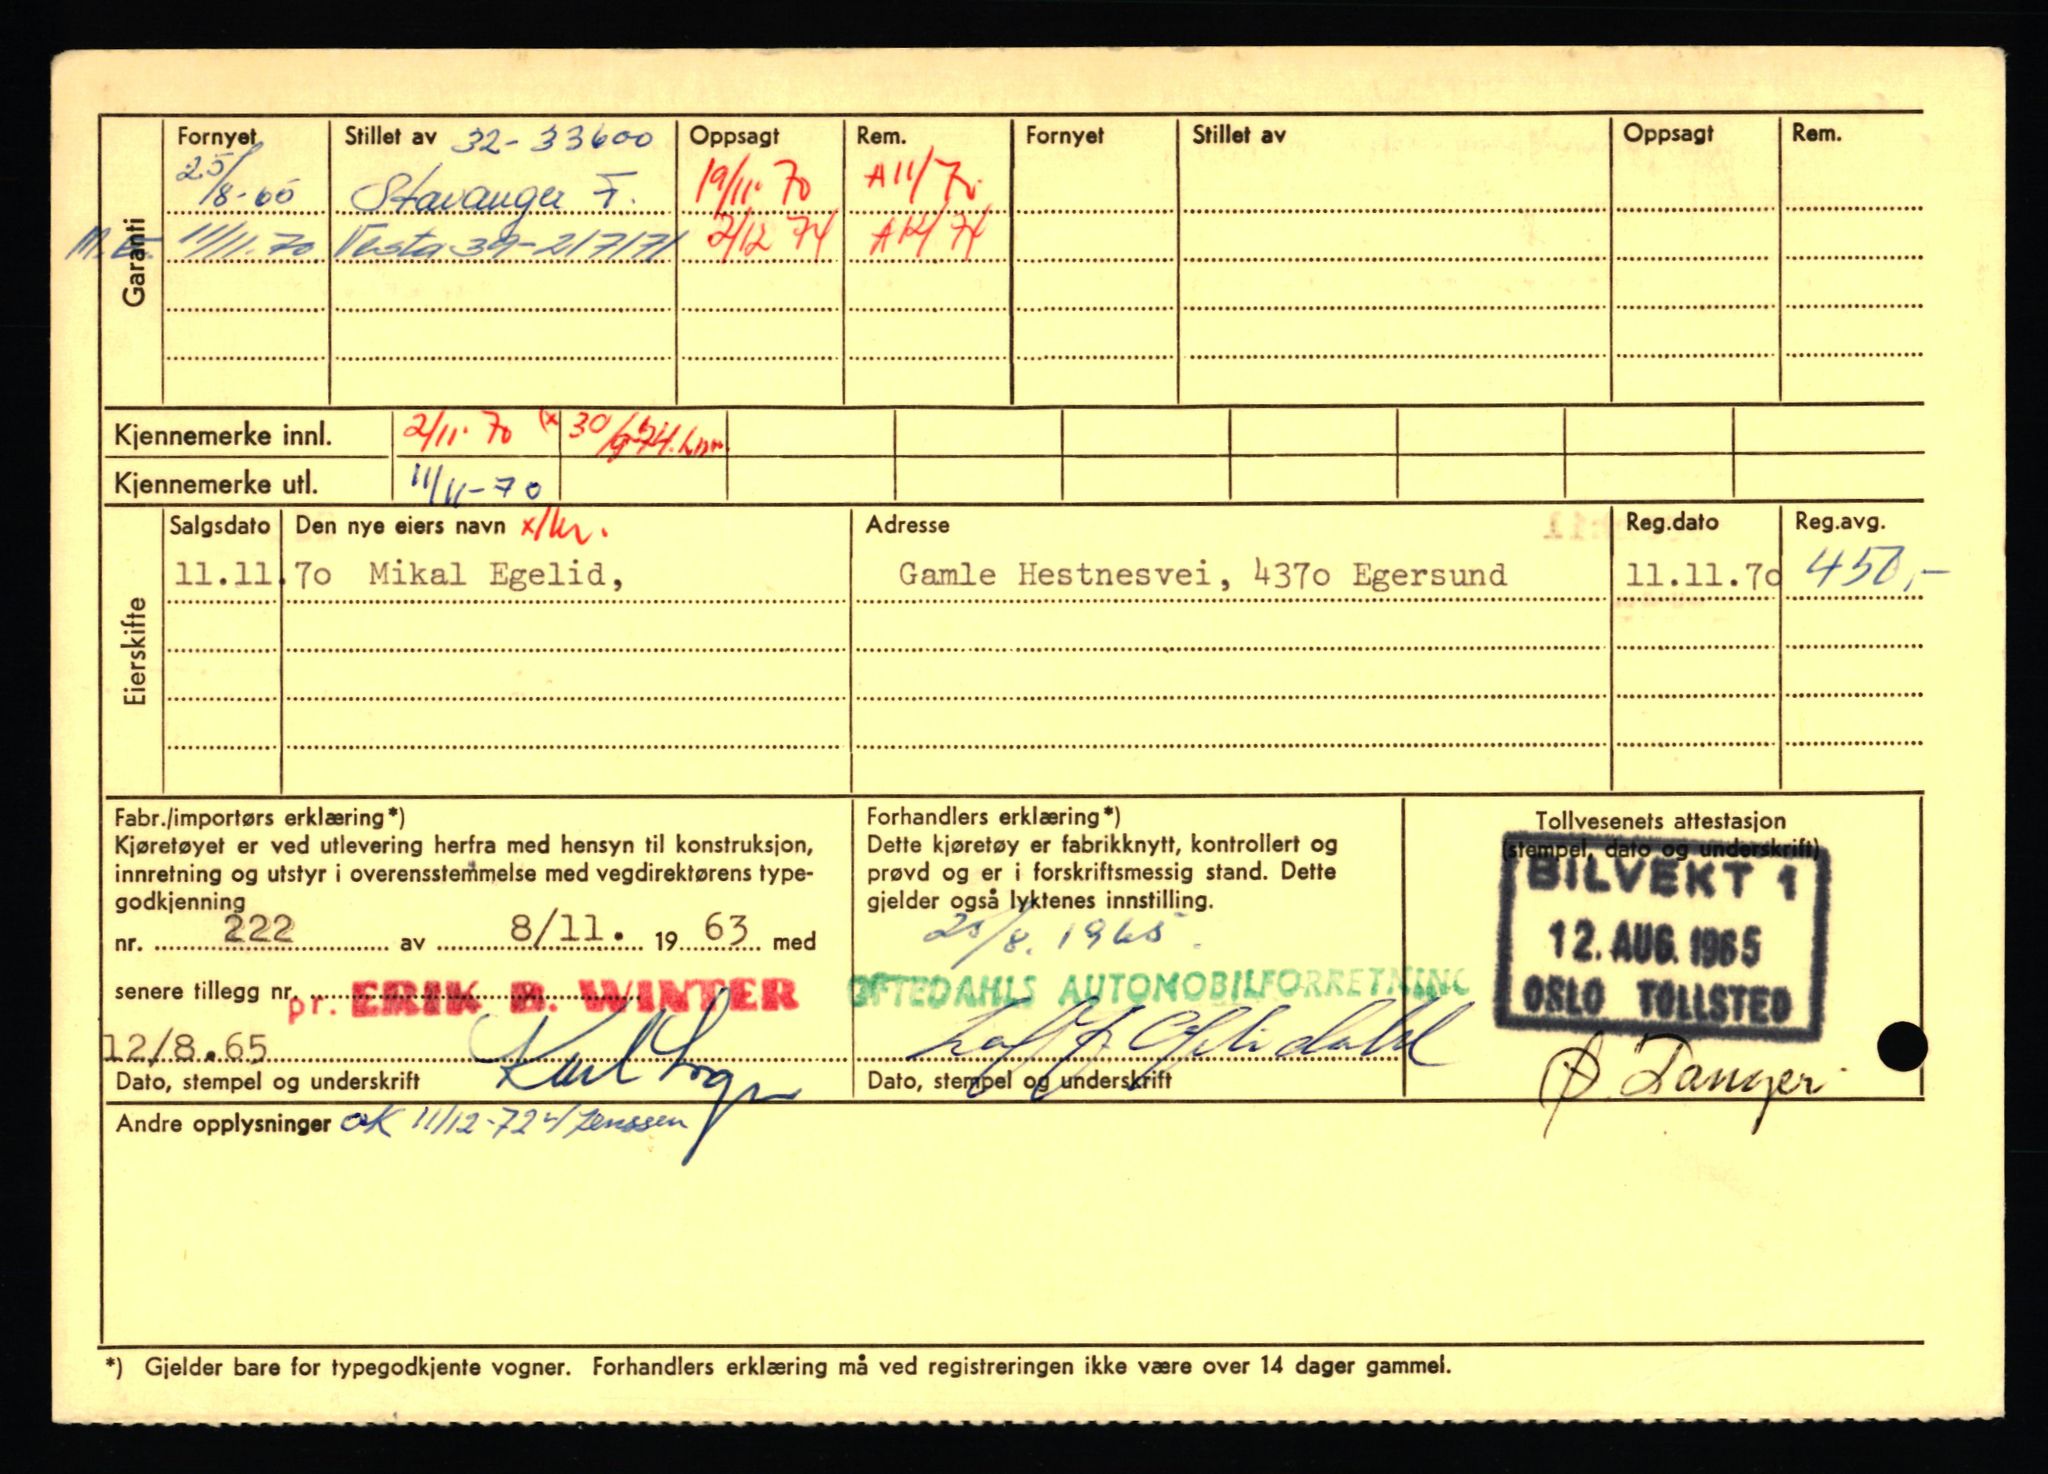 Garanti
Fornyet Stillet av 32-33600 Oppsagt Rem. Fornyet Stillet av Oppsagt Rem.
25/8-65 Stavanger F. 19/11.70 A11/70
11/11.70 Vesta 39-217171 2/12 74 A12/74
Kjennemerke innl. 2/11.70 (x 30/9-74.
Kjennemerke utl. 11/11-70
Eierskifte
Salgsdato Den nye eiers navn x/kr. Adresse Reg.dato Reg.avg.
11.11.70 Mikal Egelid, Gamle Hestnesvei, 4370 Egersund 11.11.70 450,-
Fabr./importørs erklæring*)
Kjøretøyet er ved utlevering herfra med hensyn til konstruksjon,
innretning og utstyr i overensstemmelse med vegdirektørens type-
godkjenning
nr. 222 av 8/11. 19 63 med
senere tillegg nr.
pr. ERIK B. WINTER
12/8.65
Dato, stempel og underskrift
Forhandlers erklæring*)
Dette kjøretøy er fabrikknytt, kontrollert og
prøvd og er i forskriftsmessig stand. Dette
gjelder også lyktenes innstilling.
25/8. 1965.
OFTEDAHLS AUTOMOBILFORRETNING
Dato, stempel og underskrift
Tollvesenets attestasjon
(stempel, dato og underskrift)
BILVEKT 1
12. AUG. 1965
OSLO TOLLSTED
Andre opplysninger OK 11/12-72 Jenssen
*) Gjelder bare for typegodkjente vogner. Forhandlers erklæring må ved registreringen ikke være over 14 dager gammel.